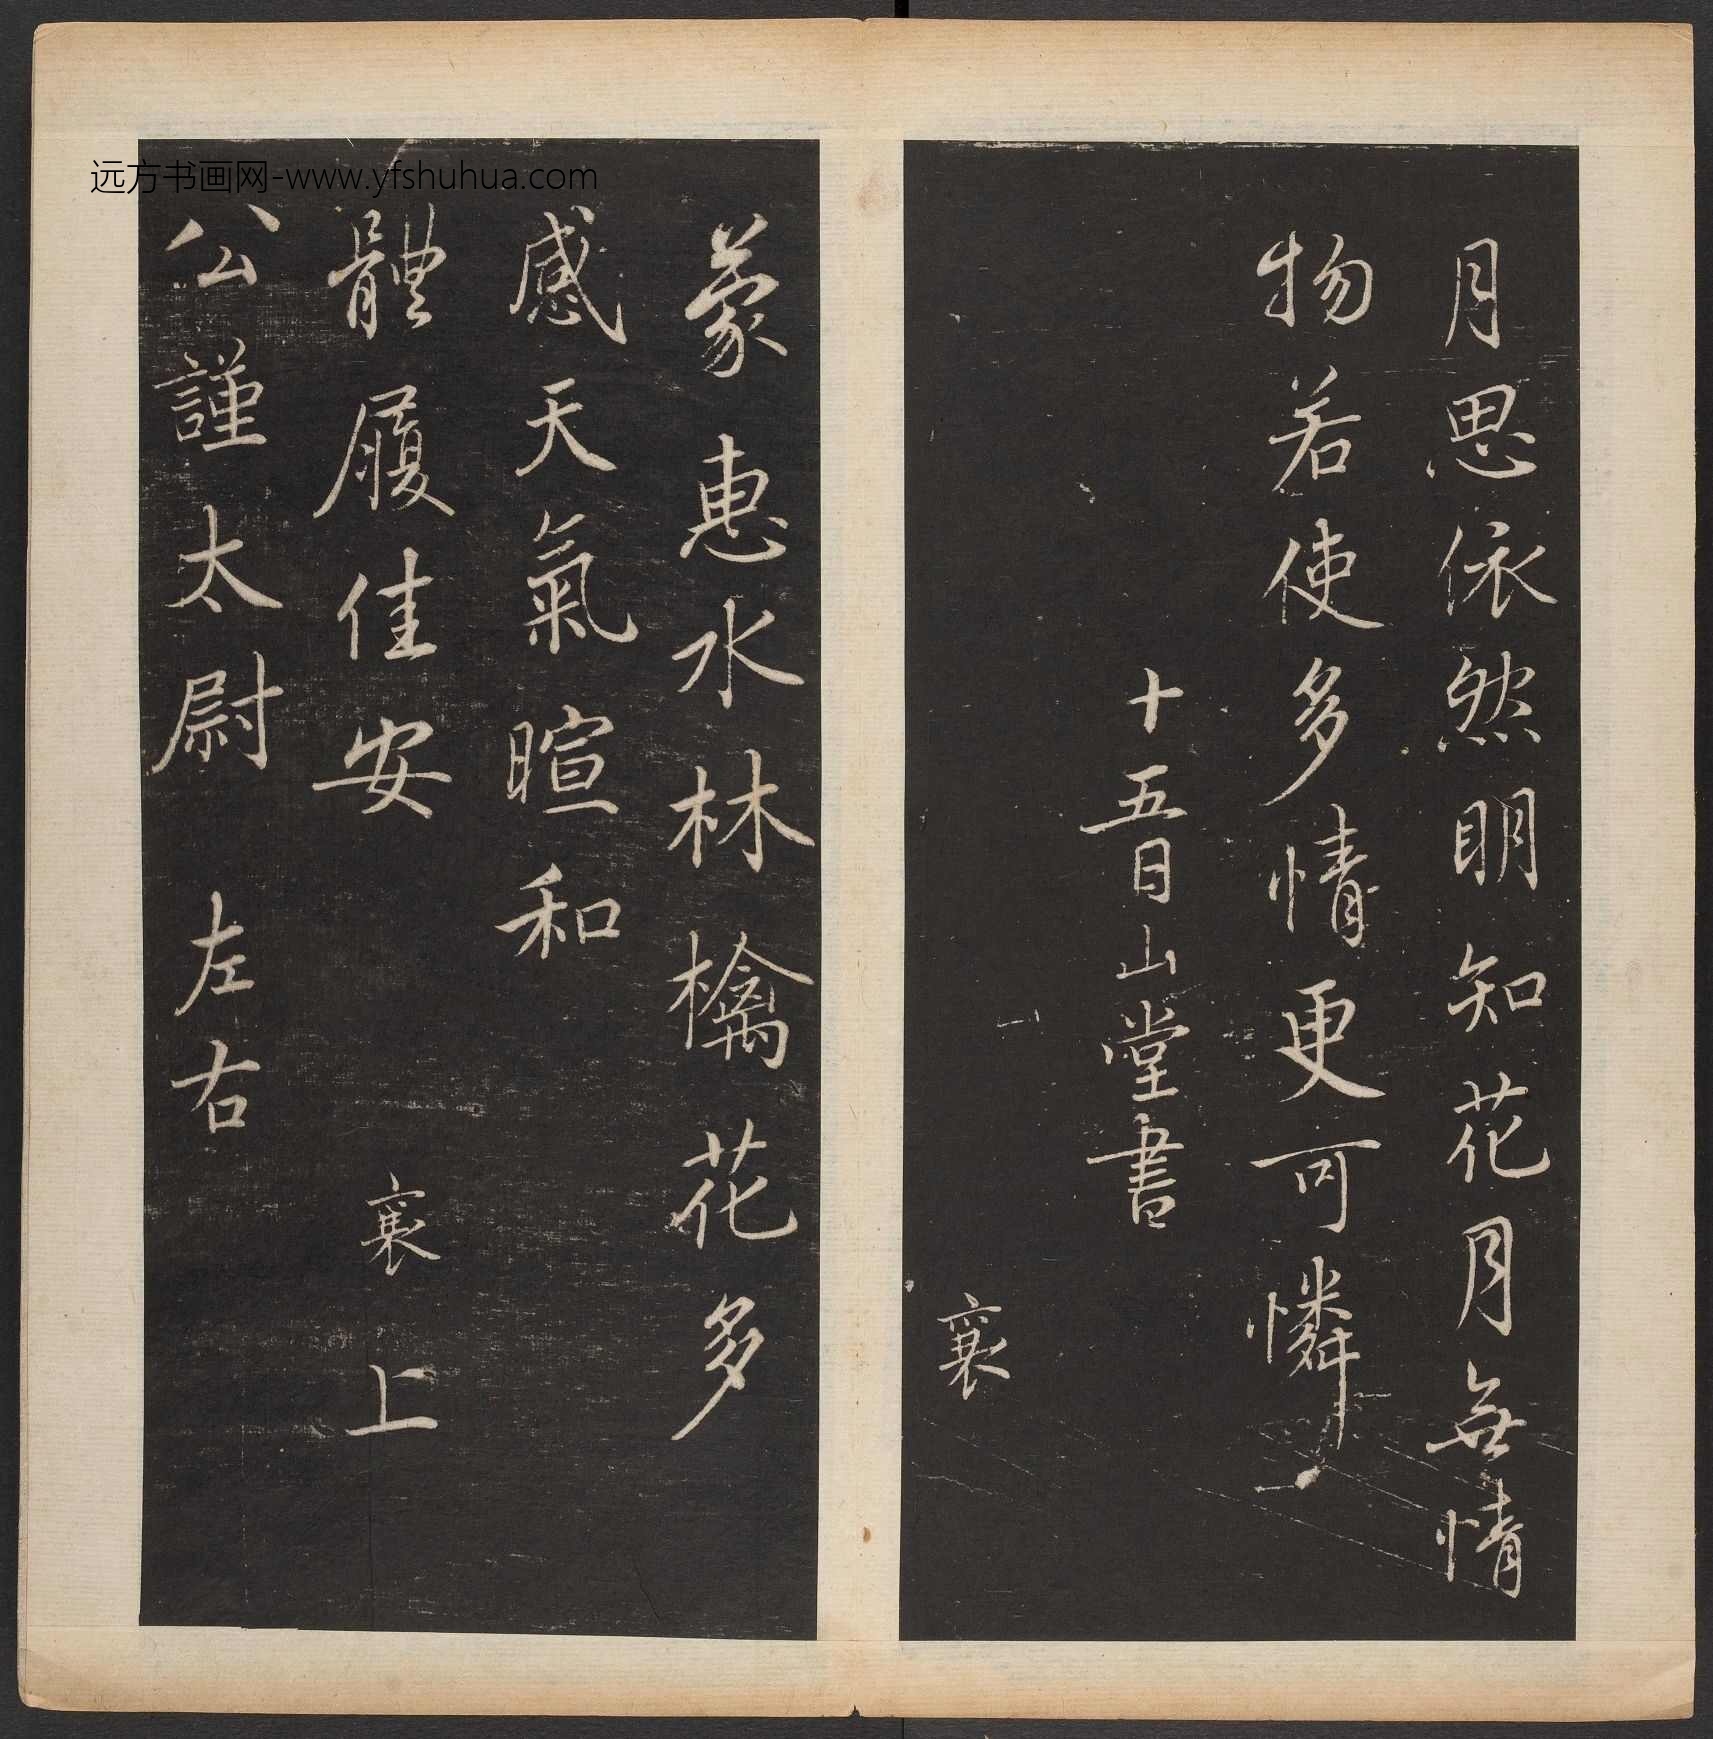 月思依然明知花月無情
物若使多情更可憐
十五日山堂書
襄
蒙惠水林檎花多
感天氣暄和
體履佳安
襄上
公謹太尉左右
远方书画网-www.yfshuhua.com